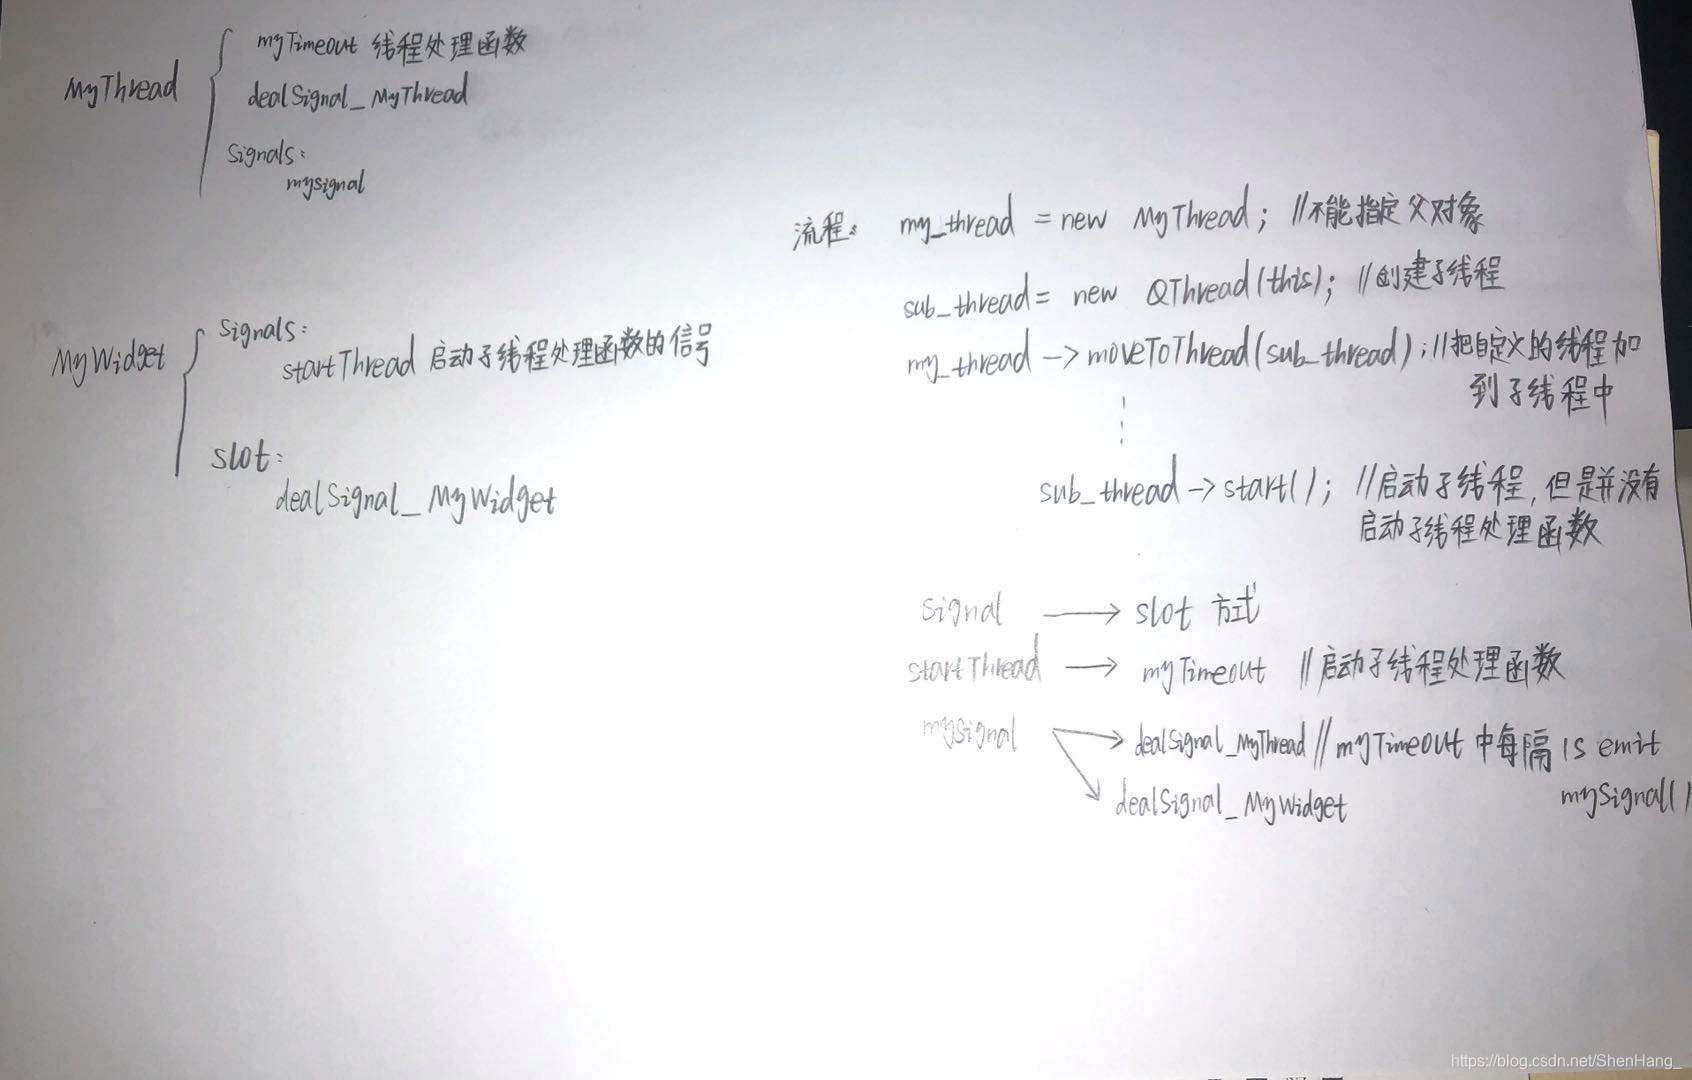 MyThread
myTimeout 线程处理函数
dealSignal_MyThread
signals:
mysignal
MyWidget
signals:
startThread 启动子线程处理函数的信号
slot:
dealSignal_MyWidget
流程: my_thread = new MyThread; //不能指定父对象
sub_thread = new QThread(this); //创建子线程
my_thread -> moveToThread(sub_thread); //把自定义的线程加
到子线程中
sub_thread -> start(); //启动子线程,但是并没有
启动子线程处理函数
signal → slot 方式
startThread → myTimeout //启动子线程处理函数
mySignal → dealSignal_MyThread //myTimeout中每隔1s emit
mySignal()
dealSignal_MyWidget
https://blog.csdn.net/ShenHang_